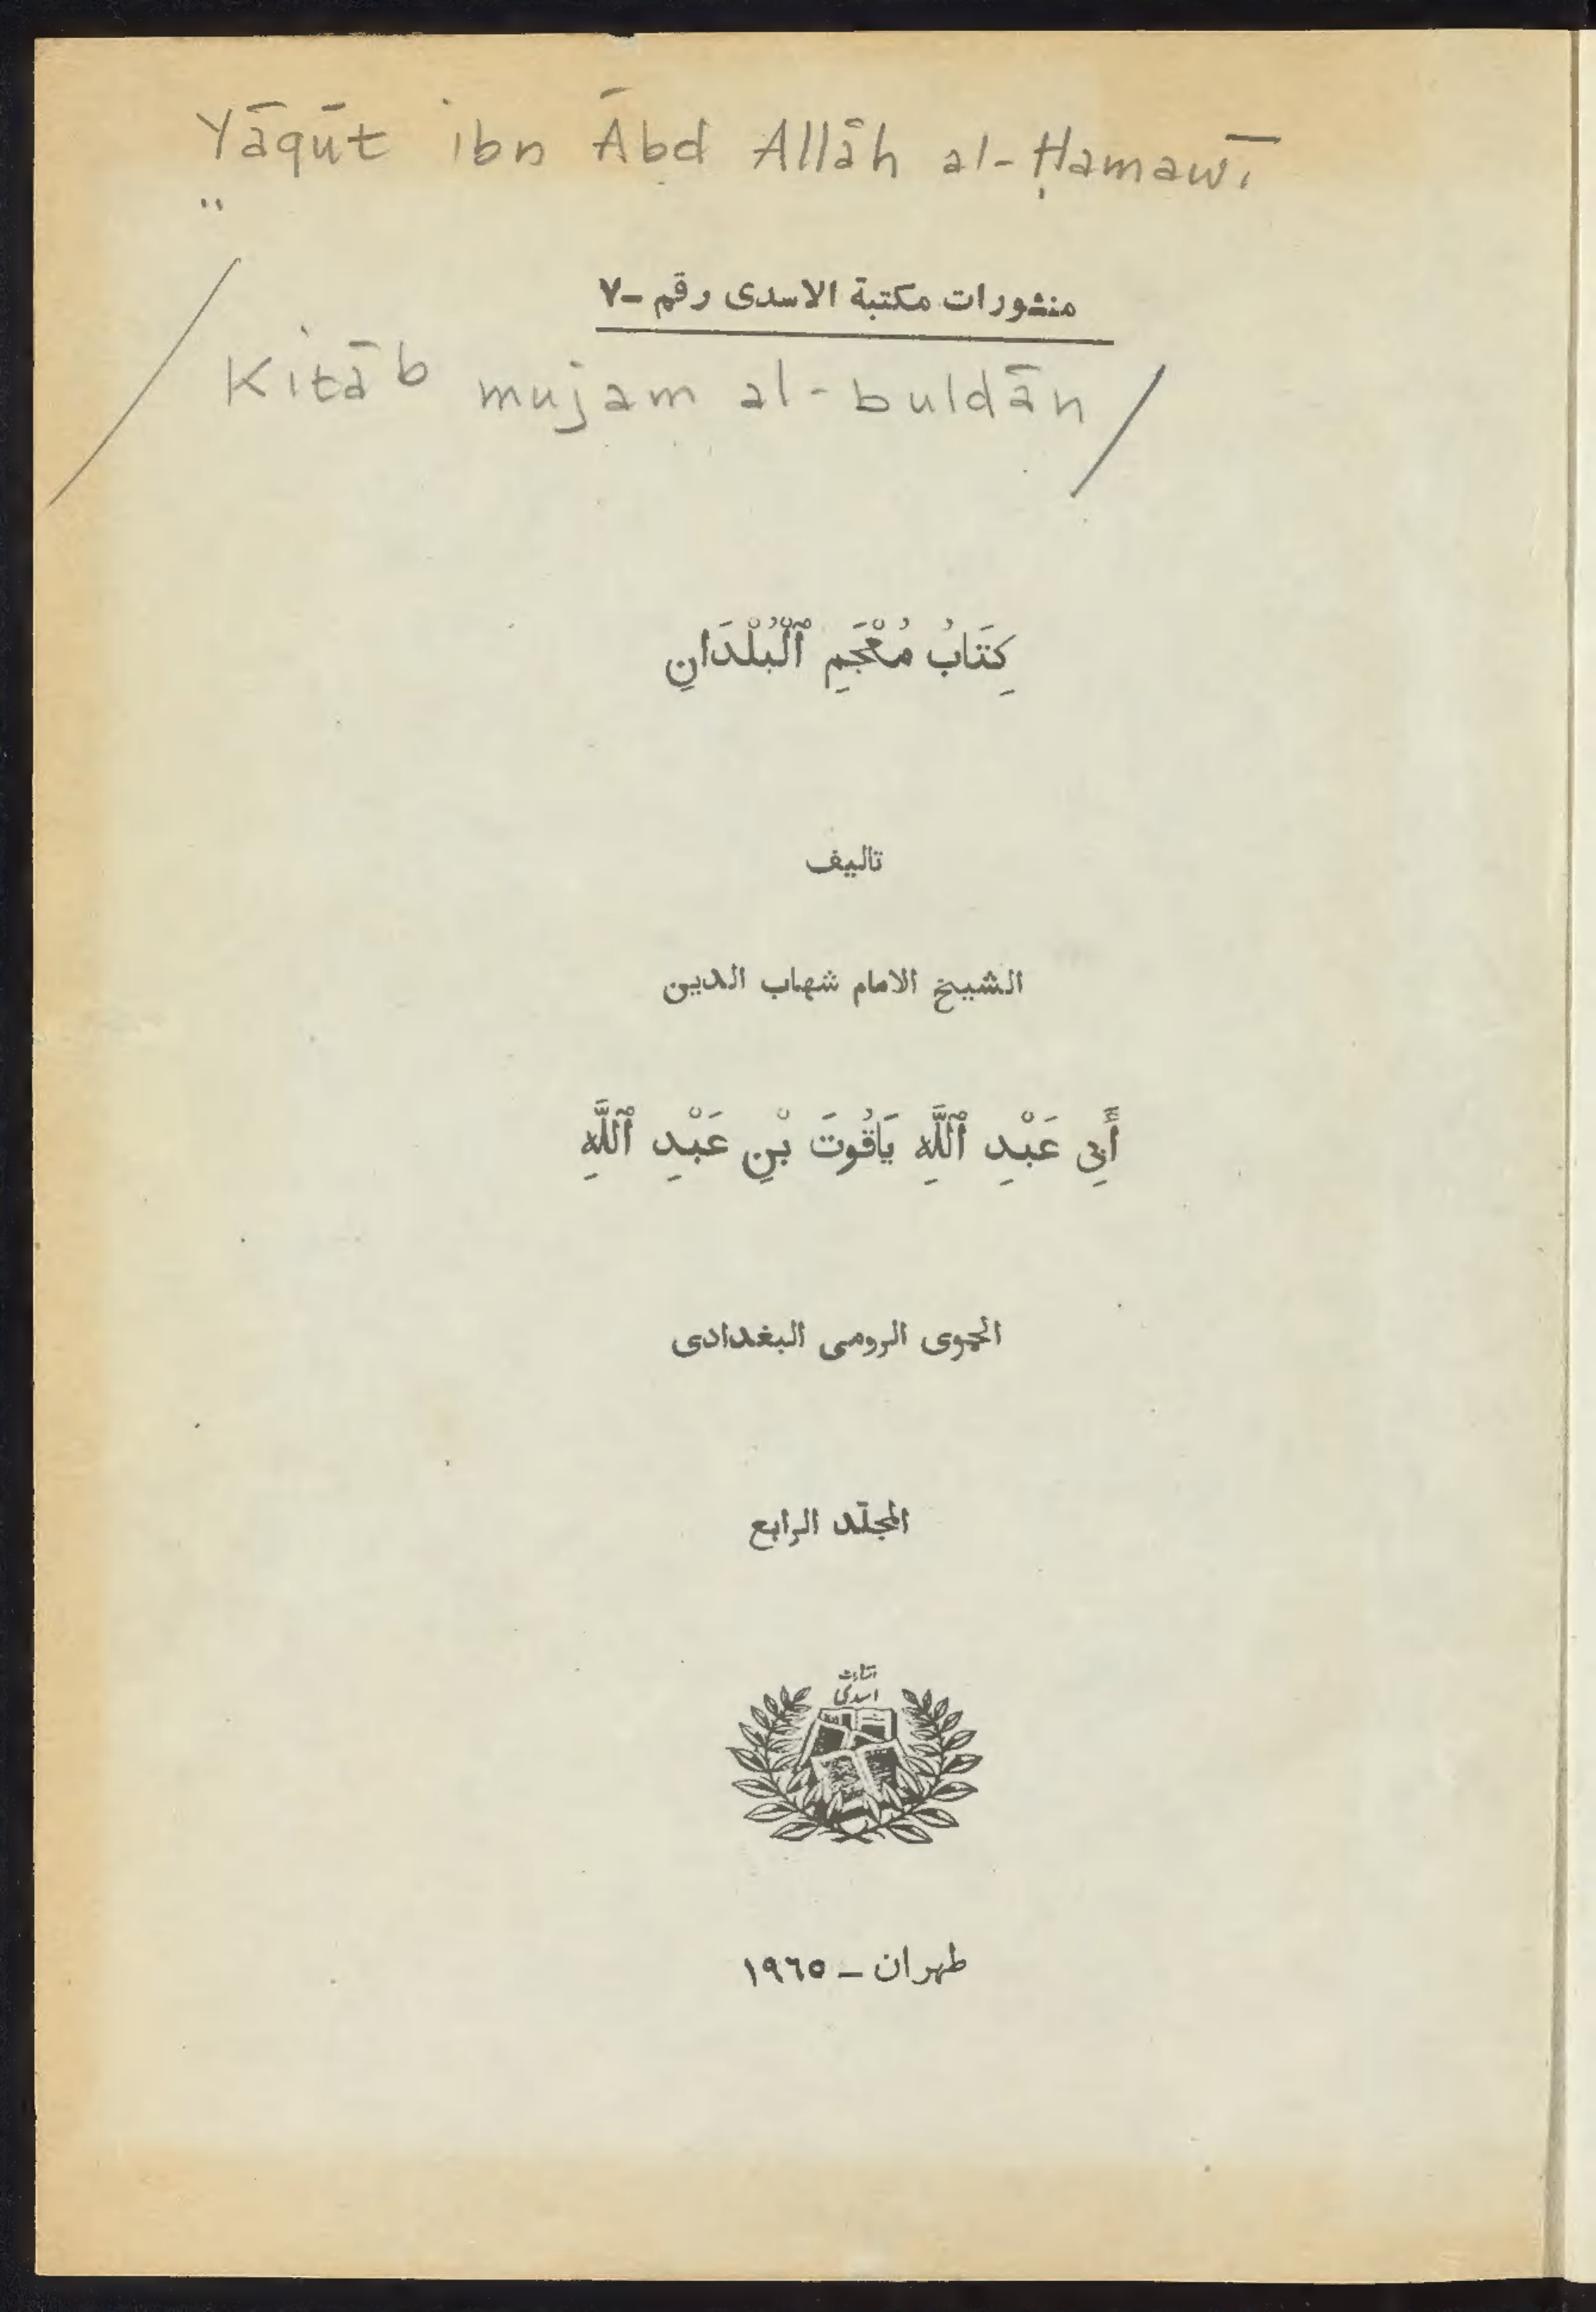 Yāqūt ibn Ābd Allāh al-Ḥamawī
منشورات مكتبة الاسدى رقم -٧
Kitāb mujam al-buldān
كِتَابُ مُعْجَمِ ٱلْبُلْدَانِ
تاليف
الشيخ الامام شهاب الدين
أَبِى عَبْدِ ٱللَّهِ يَاقُوتَ بْنِ عَبْدِ ٱللَّهِ
الحموى الرومى البغدادى
المجلّد الرابع
اسدی
طهران - ١٩٦٥